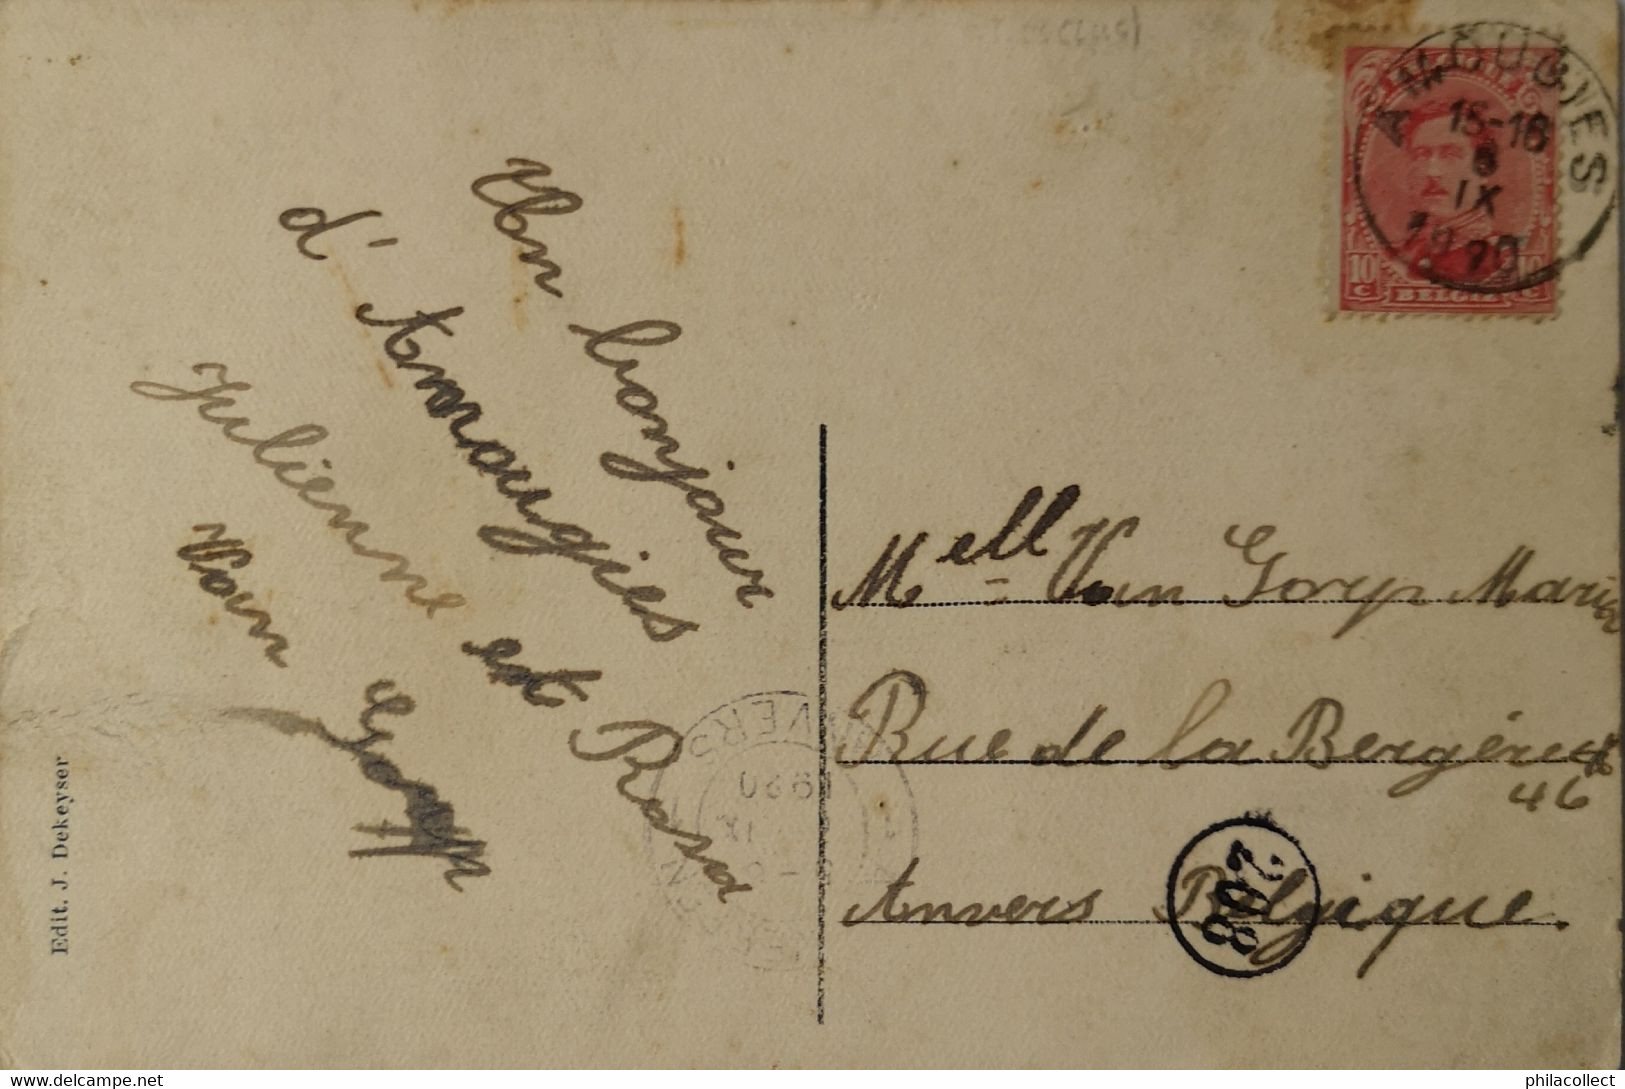 Un bonjour
d'Amougies
Julienne et Rosa
Van Gorp
Edit. J. Dekeyser
AMOUGIES
15-16
6
IX
1920
10 C BELGIE 10 C
Mell Van Gorp Maria
Rue de la Bergère
46
Anvers Belgique.
208
ANVERS
1920
IX
philacollect